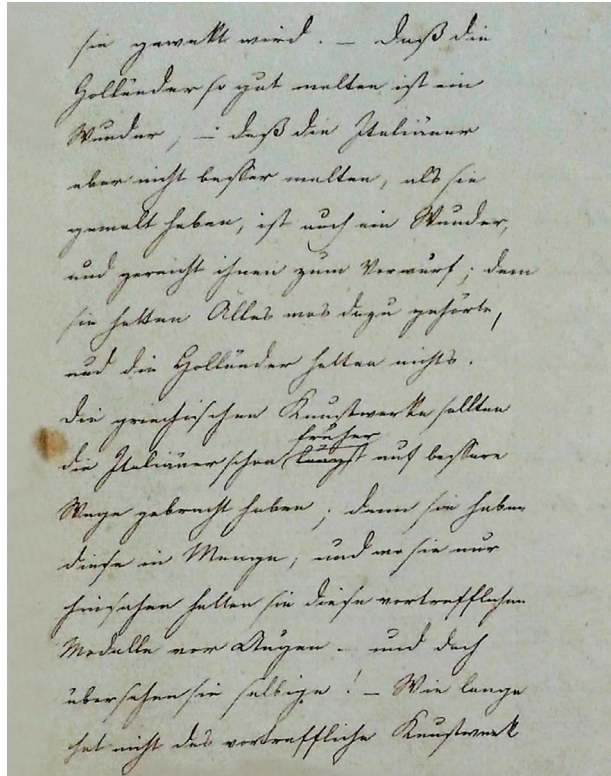 sie gewekt wird. – Daß die
Holländer so gut malten ist ein
Wunder, – daß die Italiäner
aber nicht besser malten, als sie
gemalt haben, ist auch ein Wunder,
und gereicht ihnen zum Vorwurf; denn
sie hatten Alles was dazu gehörte,
und die Holländer hatten nichts.
Die griechischen Kunstwerke sollten
früher
die Italiäner schon längst auf bessere
Wege gebracht haben; denn sie haben
diese in Menge, und wo sie nur
hinsahen hatten sie diese vortrefflichen
Modelle vor Augen – und doch
übersehen sie selbige! – Wie lange
hat nicht das vortreffliche Kunstwerk